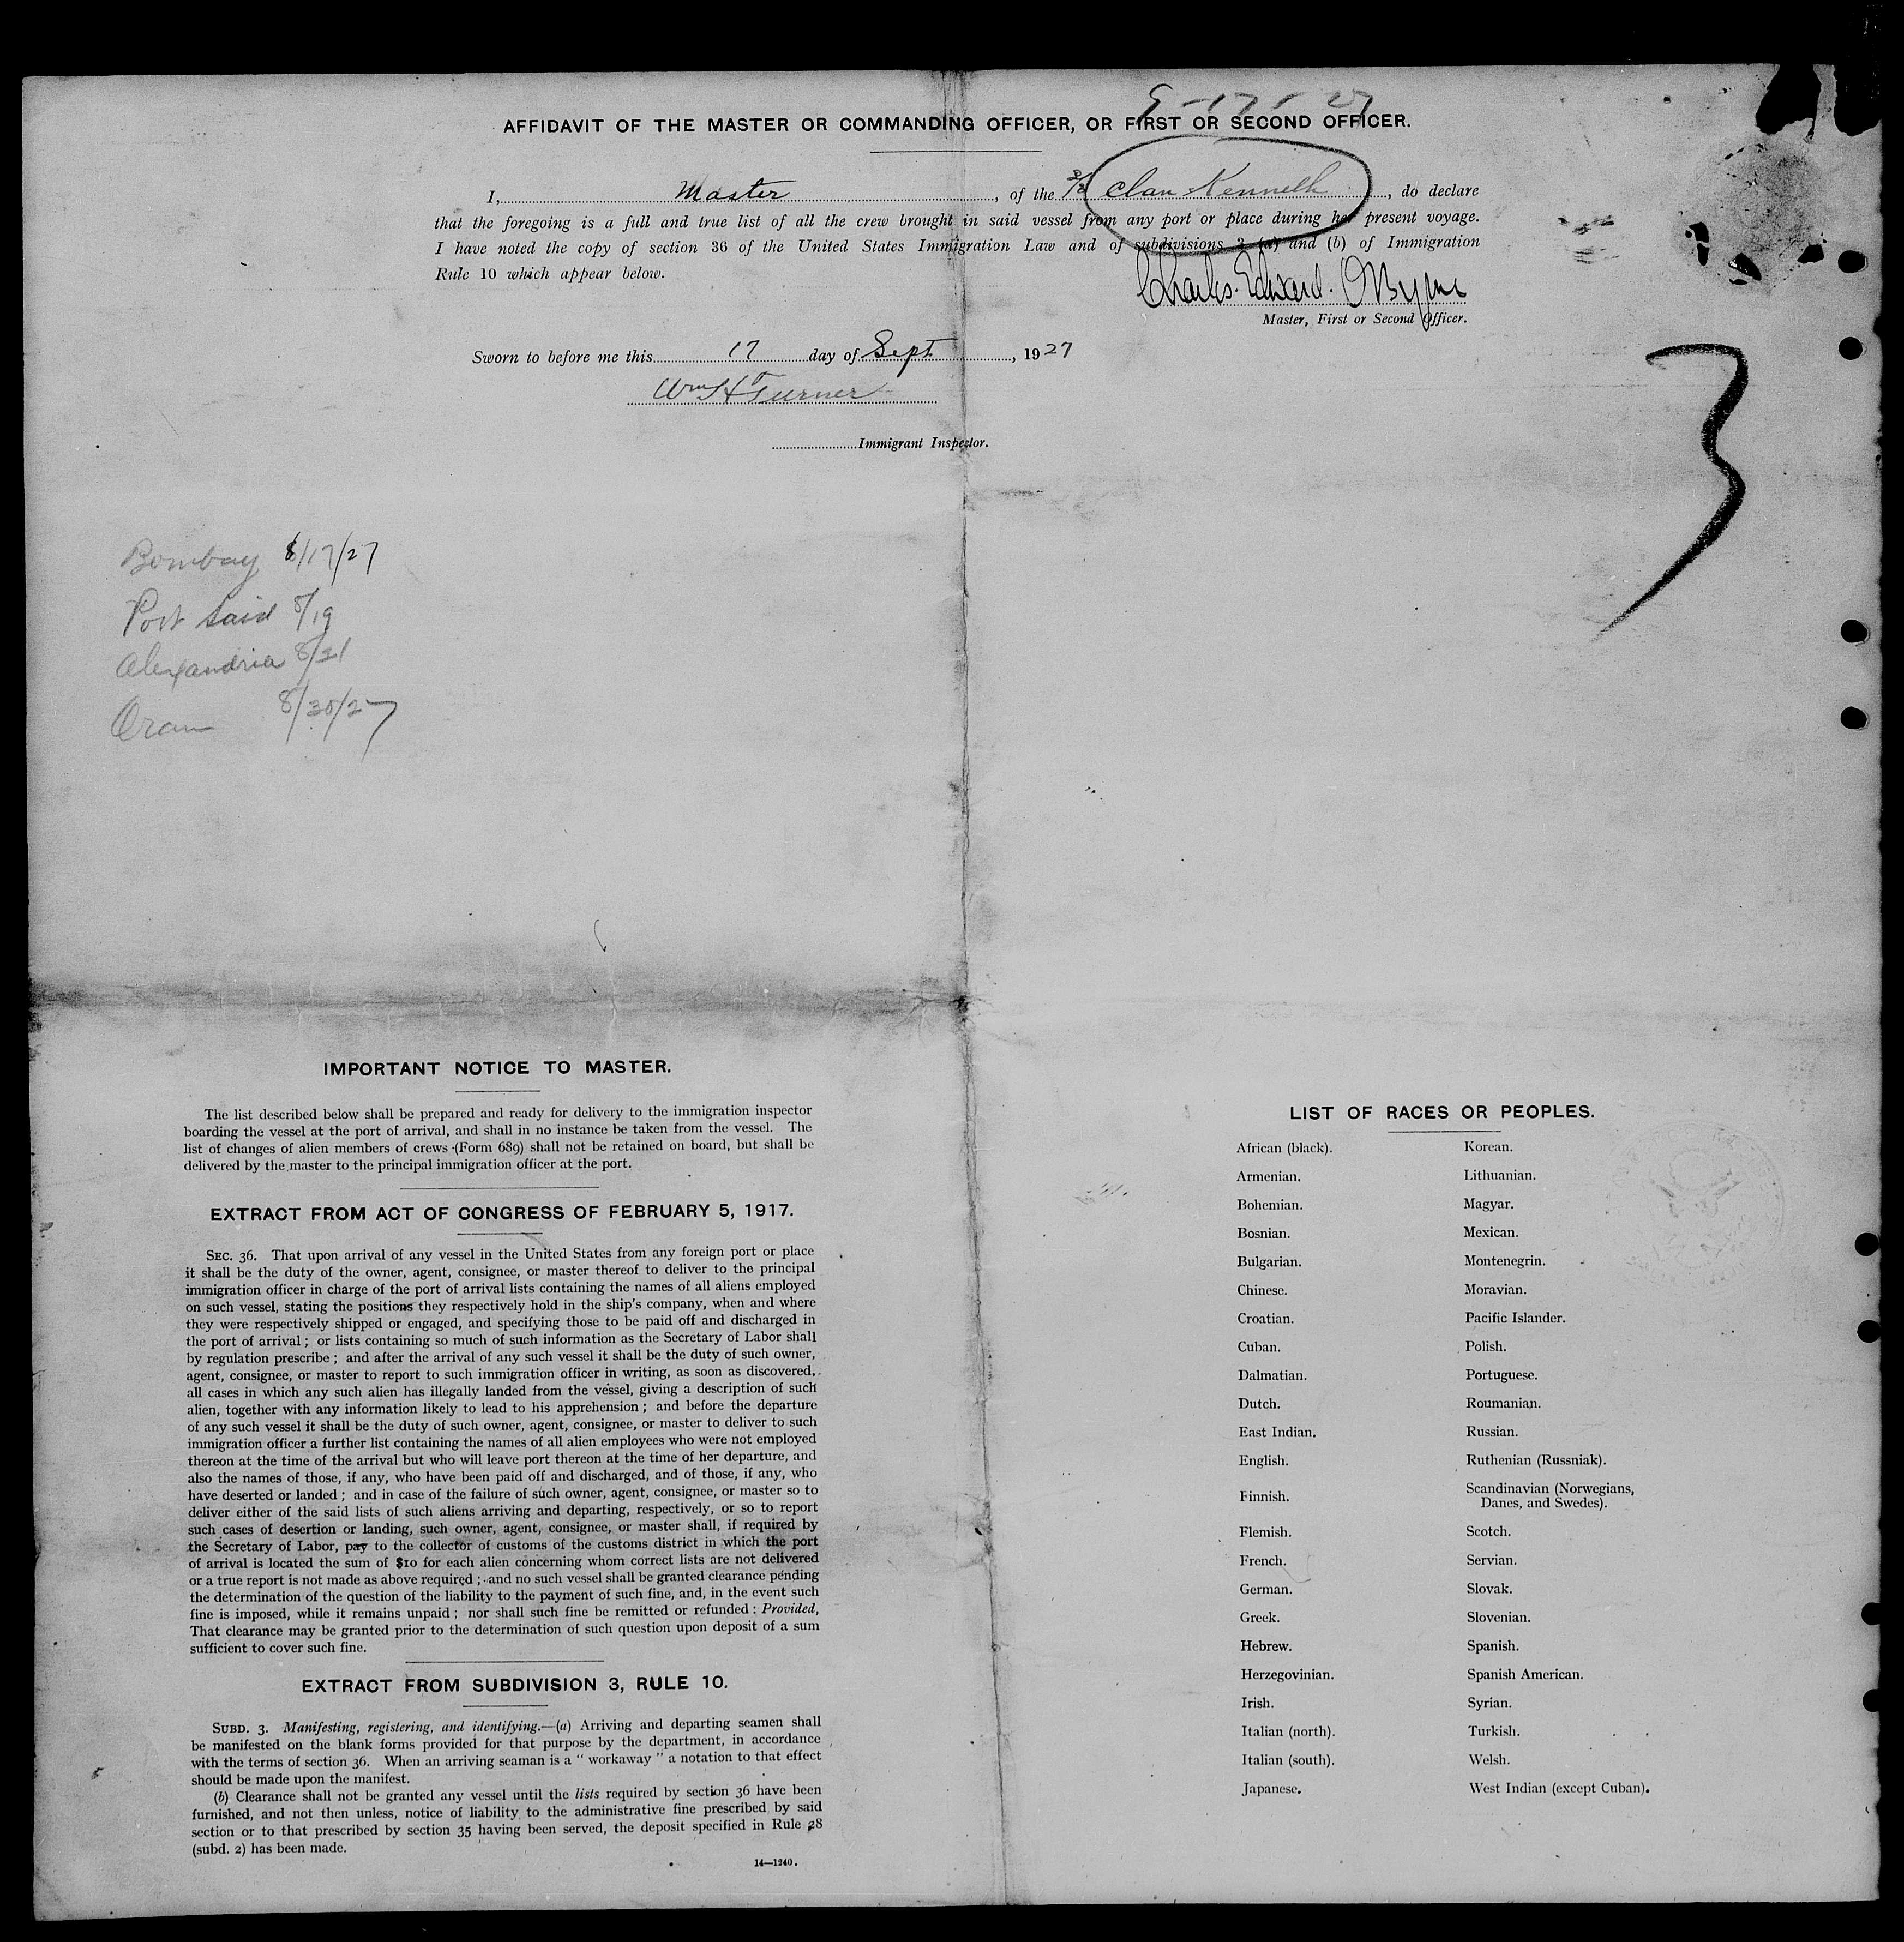 9-17-27
AFFIDAVIT OF THE MASTER OR COMMANDING OFFICER, OR FIRST OR SECOND OFFICER.
I, Master, of the S/S Clan Kenneth, do declare
that the foregoing is a full and true list of all the crew brought in said vessel from any port or place during her present voyage.
I have noted the copy of section 36 of the United States Immigration Law and of subdivisions 3 (a) and (b) of Immigration
Rule 10 which appear below.
Charles Edward O'Byrne
Master, First or Second Officer.
Sworn to before me this 17 day of Sept, 1927
Wm H Turner
Immigrant Inspector.
3
Bombay 8/17/27
Port Said 8/19
Alexandria 8/21
Oran 8/30/27
IMPORTANT NOTICE TO MASTER.
The list described below shall be prepared and ready for delivery to the immigration inspector
boarding the vessel at the port of arrival, and shall in no instance be taken from the vessel. The
list of changes of alien members of crews (Form 689) shall not be retained on board, but shall be
delivered by the master to the principal immigration officer at the port.
EXTRACT FROM ACT OF CONGRESS OF FEBRUARY 5, 1917.
SEC. 36. That upon arrival of any vessel in the United States from any foreign port or place
it shall be the duty of the owner, agent, consignee, or master thereof to deliver to the principal
immigration officer in charge of the port of arrival lists containing the names of all aliens employed
on such vessel, stating the positions they respectively hold in the ship's company, when and where
they were respectively shipped or engaged, and specifying those to be paid off and discharged in
the port of arrival; or lists containing so much of such information as the Secretary of Labor shall
by regulation prescribe; and after the arrival of any such vessel it shall be the duty of such owner,
agent, consignee, or master to report to such immigration officer in writing, as soon as discovered,
all cases in which any such alien has illegally landed from the vessel, giving a description of such
alien, together with any information likely to lead to his apprehension; and before the departure
of any such vessel it shall be the duty of such owner, agent, consignee, or master to deliver to such
immigration officer a further list containing the names of all alien employees who were not employed
thereon at the time of the arrival but who will leave port thereon at the time of her departure, and
also the names of those, if any, who have been paid off and discharged, and of those, if any, who
have deserted or landed; and in case of the failure of such owner, agent, consignee, or master so to
deliver either of the said lists of such aliens arriving and departing, respectively, or so to report
such cases of desertion or landing, such owner, agent, consignee, or master shall, if required by
the Secretary of Labor, pay to the collector of customs of the customs district in which the port
of arrival is located the sum of $10 for each alien concerning whom correct lists are not delivered
or a true report is not made as above required; and no such vessel shall be granted clearance pending
the determination of the question of the liability to the payment of such fine, and, in the event such
fine is imposed, while it remains unpaid; nor shall such fine be remitted or refunded: Provided,
That clearance may be granted prior to the determination of such question upon deposit of a sum
sufficient to cover such fine.
EXTRACT FROM SUBDIVISION 3, RULE 10.
SUBD. 3. Manifesting, registering, and identifying.—(a) Arriving and departing seamen shall
be manifested on the blank forms provided for that purpose by the department, in accordance
with the terms of section 36. When an arriving seaman is a "workaway" a notation to that effect
should be made upon the manifest.
(b) Clearance shall not be granted any vessel until the lists required by section 36 have been
furnished, and not then unless, notice of liability to the administrative fine prescribed by said
section or to that prescribed by section 35 having been served, the deposit specified in Rule 28
(subd. 2) has been made.
14—1240.
LIST OF RACES OR PEOPLES.
African (black). Korean.
Armenian. Lithuanian.
Bohemian. Magyar.
Bosnian. Mexican.
Bulgarian. Montenegrin.
Chinese. Moravian.
Croatian. Pacific Islander.
Cuban. Polish.
Dalmatian. Portuguese.
Dutch. Roumanian.
East Indian. Russian.
English. Ruthenian (Russniak).
Finnish. Scandinavian (Norwegians,
Danes, and Swedes).
Flemish. Scotch.
French. Servian.
German. Slovak.
Greek. Slovenian.
Hebrew. Spanish.
Herzegovinian. Spanish American.
Irish. Syrian.
Italian (north). Turkish.
Italian (south). Welsh.
Japanese. West Indian (except Cuban).